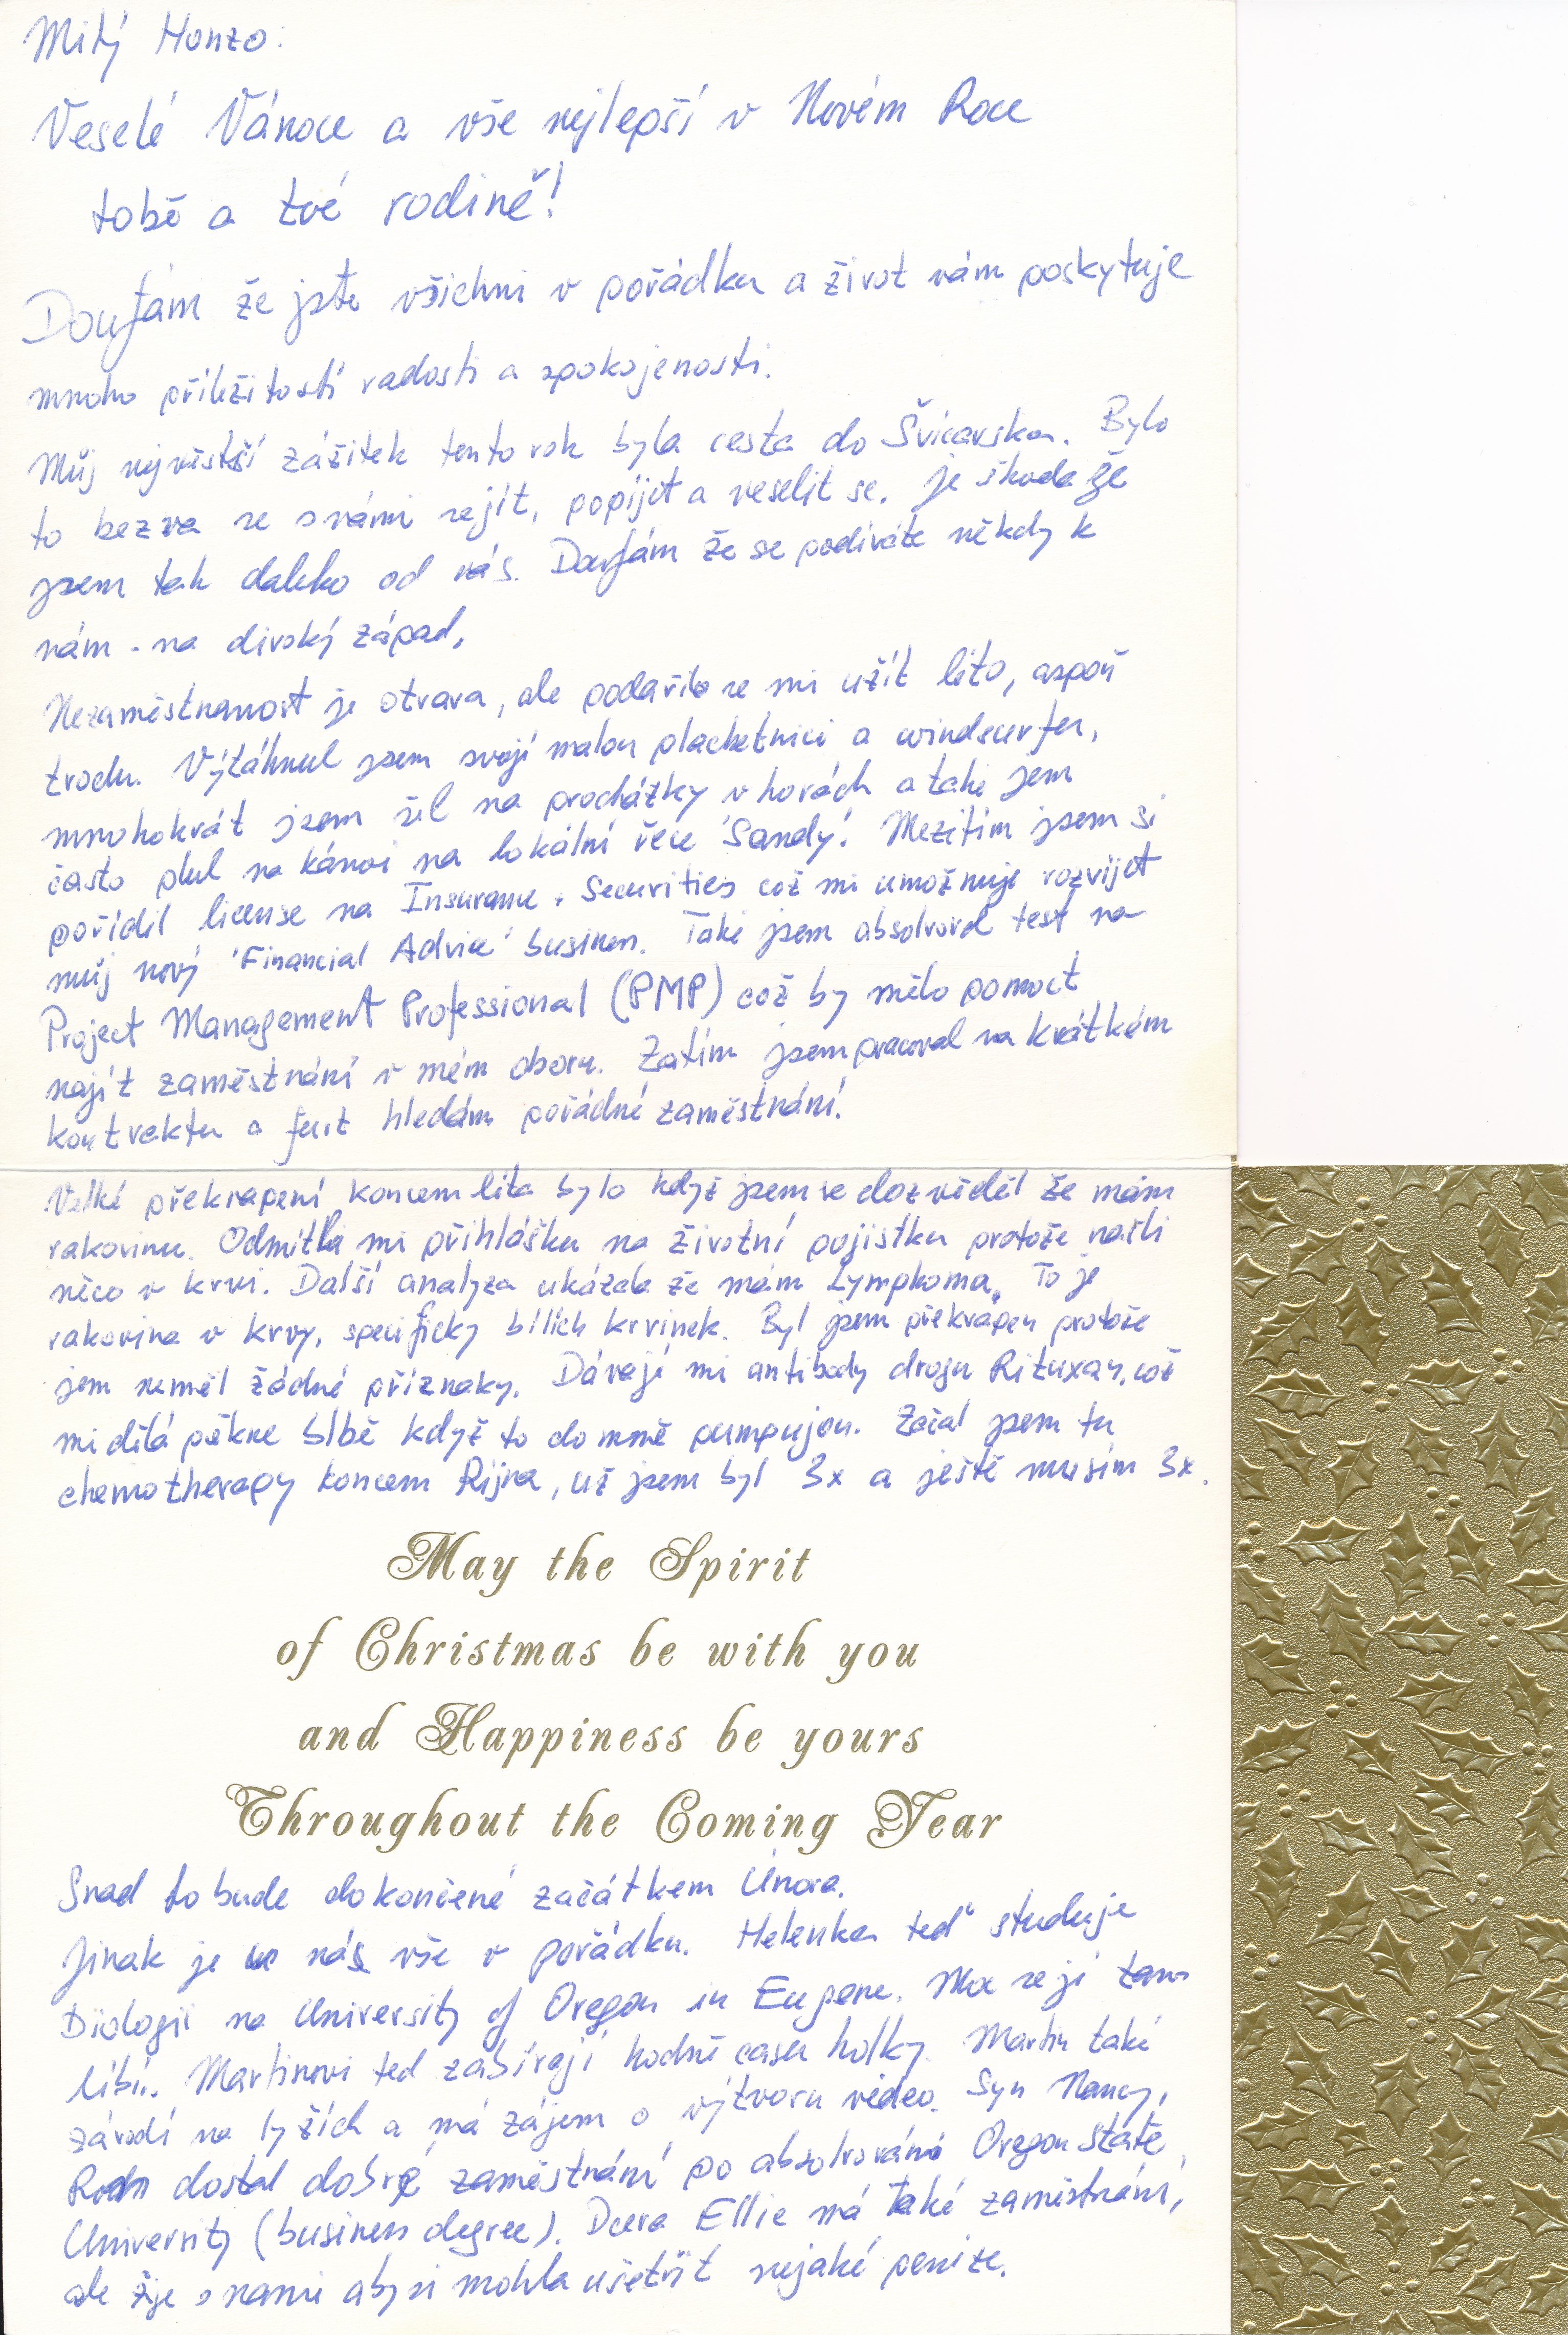 Milý Honzo:
Veselé Vánoce a vše nejlepší v Novém Roce
tobě a tvé rodině!
Doufám že jste všichni v pořádku a život vám poskytuje
mnoho příležitostí radosti a spokojenosti.
Můj nejvěstší zážitek tento rok byla cesta do Švícarska. Bylo
to bezva se s vámi sejít, popíjet a veselit se. Je škoda že
jsem tak daleko od vás. Doufám že se podiváte někdy k
nám - na divoký západ.
Nezaměstnanost je otrava, ale podařilo se mi užít léto, aspoň
trochu. Výtáhnul jsem svojí malou plachetnici a windsurfer,
mnohokrát jsem šel na procházky v horách a také jsem
často plul na kánoi na lokální řece 'Sandy'. Mezitím jsem si
pořídil license na Insurance + Securities což mi umožnuje rozvíjet
můj nový 'Financial Advice' business. Také jsem absolvoval test na
Project Management Professional (PMP) což by mělo pomoct
najít zaměstnání v mém oboru. Zatím jsem pracoval na krátkém
kontraktu a furt hledám pořádné zaměstnání.
Velké překvapení koncem léta bylo když jsem se dozvěděl že mám
rakovinu. Odmítla mi přihlášku na životní pojistku protože našli
něco v krvi. Další analyza ukázala že mám Lymphoma. To je
rakovina v krvy, specificky bílích krvinek. Byl jsem překvapen protože
jsem neměl žádné příznaky. Dávají mi antibody drogu Rituxan, což
mi dělá pěkne blbě když to do mně pumpujou. Začal jsem tu
chemotherapy koncem Rijna, už jsem byl 3x a ještě musím 3x.
May the Spirit
of Christmas be with you
and Happiness be yours
Throughout the Coming Year
Snad to bude dokončené začátkem Února.
Jinak je u nás vše v pořádku. Helenka teď studuje
Biologii na University of Oregon in Eugene. Moc se jí tam
líbí. Martinovi ted zabírají hodně času holky. Martin také
závodí na lyžích a má zájem o výtvoru video. Syn Nancy,
dostal dobré zaměstnání po absolvování Oregon State
University (business degree). Dcera Ellie má také zaměstnání,
ale žije s nami aby si mohla ušetřit nejaké penize.